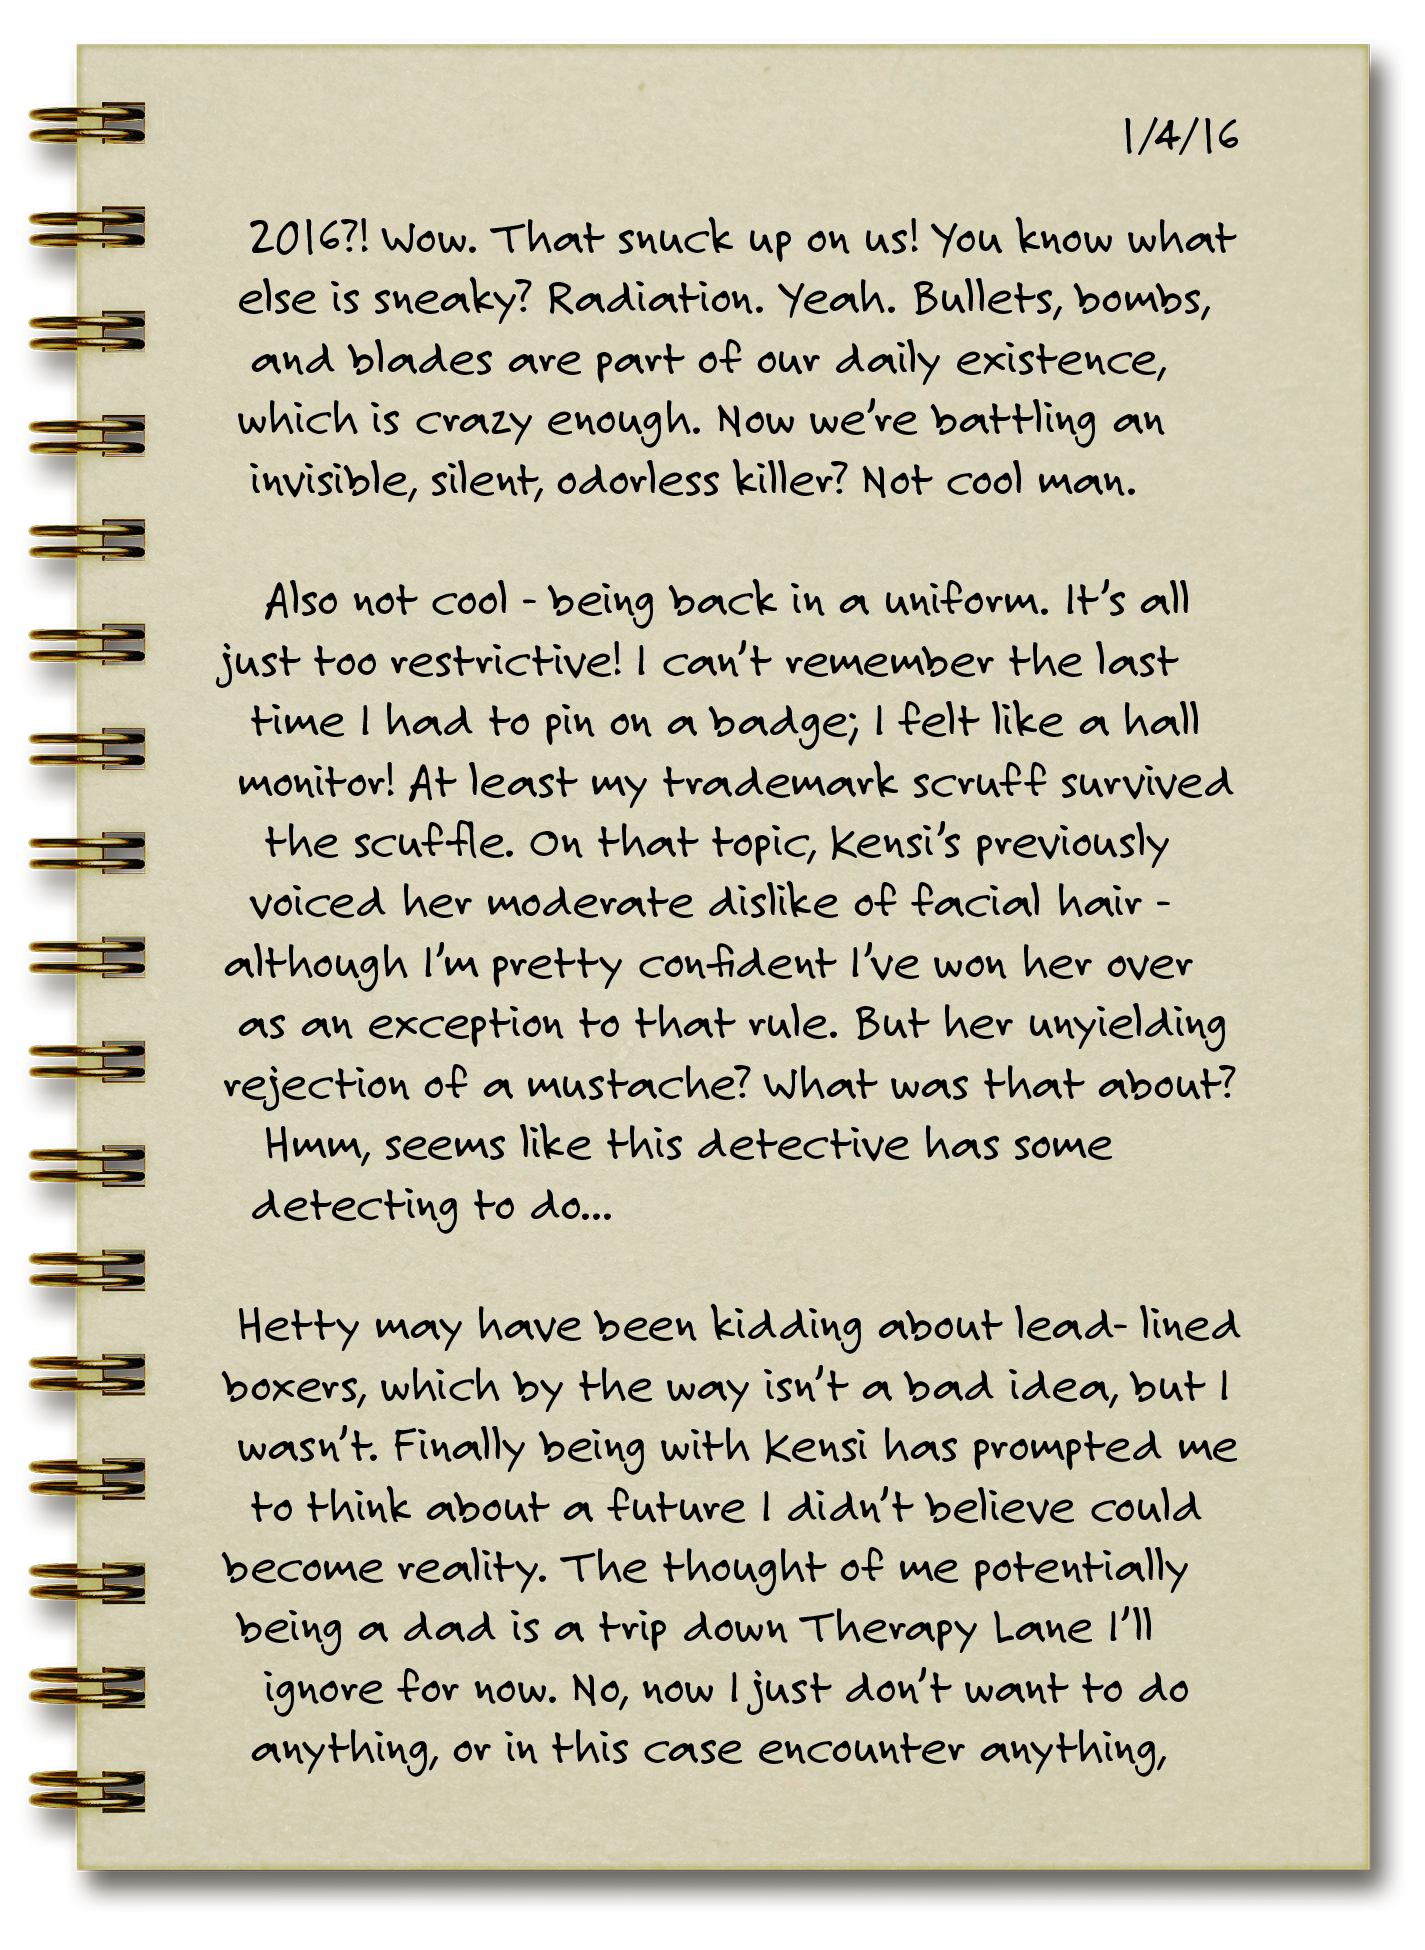 1/4/16
2016?! Wow. That snuck up on us! You know what
else is sneaky? Radiation. Yeah. Bullets, bombs,
and blades are part of our daily existence,
which is crazy enough. Now we're battling an
invisible, silent, odorless killer? Not cool man.
Also not cool - being back in a uniform. It's all
just too restrictive! I can't remember the last
time I had to pin on a badge; I felt like a hall
monitor! At least my trademark scruff survived
the scuffle. On that topic, Kensi's previously
voiced her moderate dislike of facial hair -
although I'm pretty confident I've won her over
as an exception to that rule. But her unyielding
rejection of a mustache? What was that about?
Hmm, seems like this detective has some
detecting to do...
Hetty may have been kidding about lead- lined
boxers, which by the way isn't a bad idea, but I
wasn't. Finally being with Kensi has prompted me
to think about a future I didn't believe could
become reality. The thought of me potentially
being a dad is a trip down Therapy Lane I'll
ignore for now. No, now I just don't want to do
anything, or in this case encounter anything,